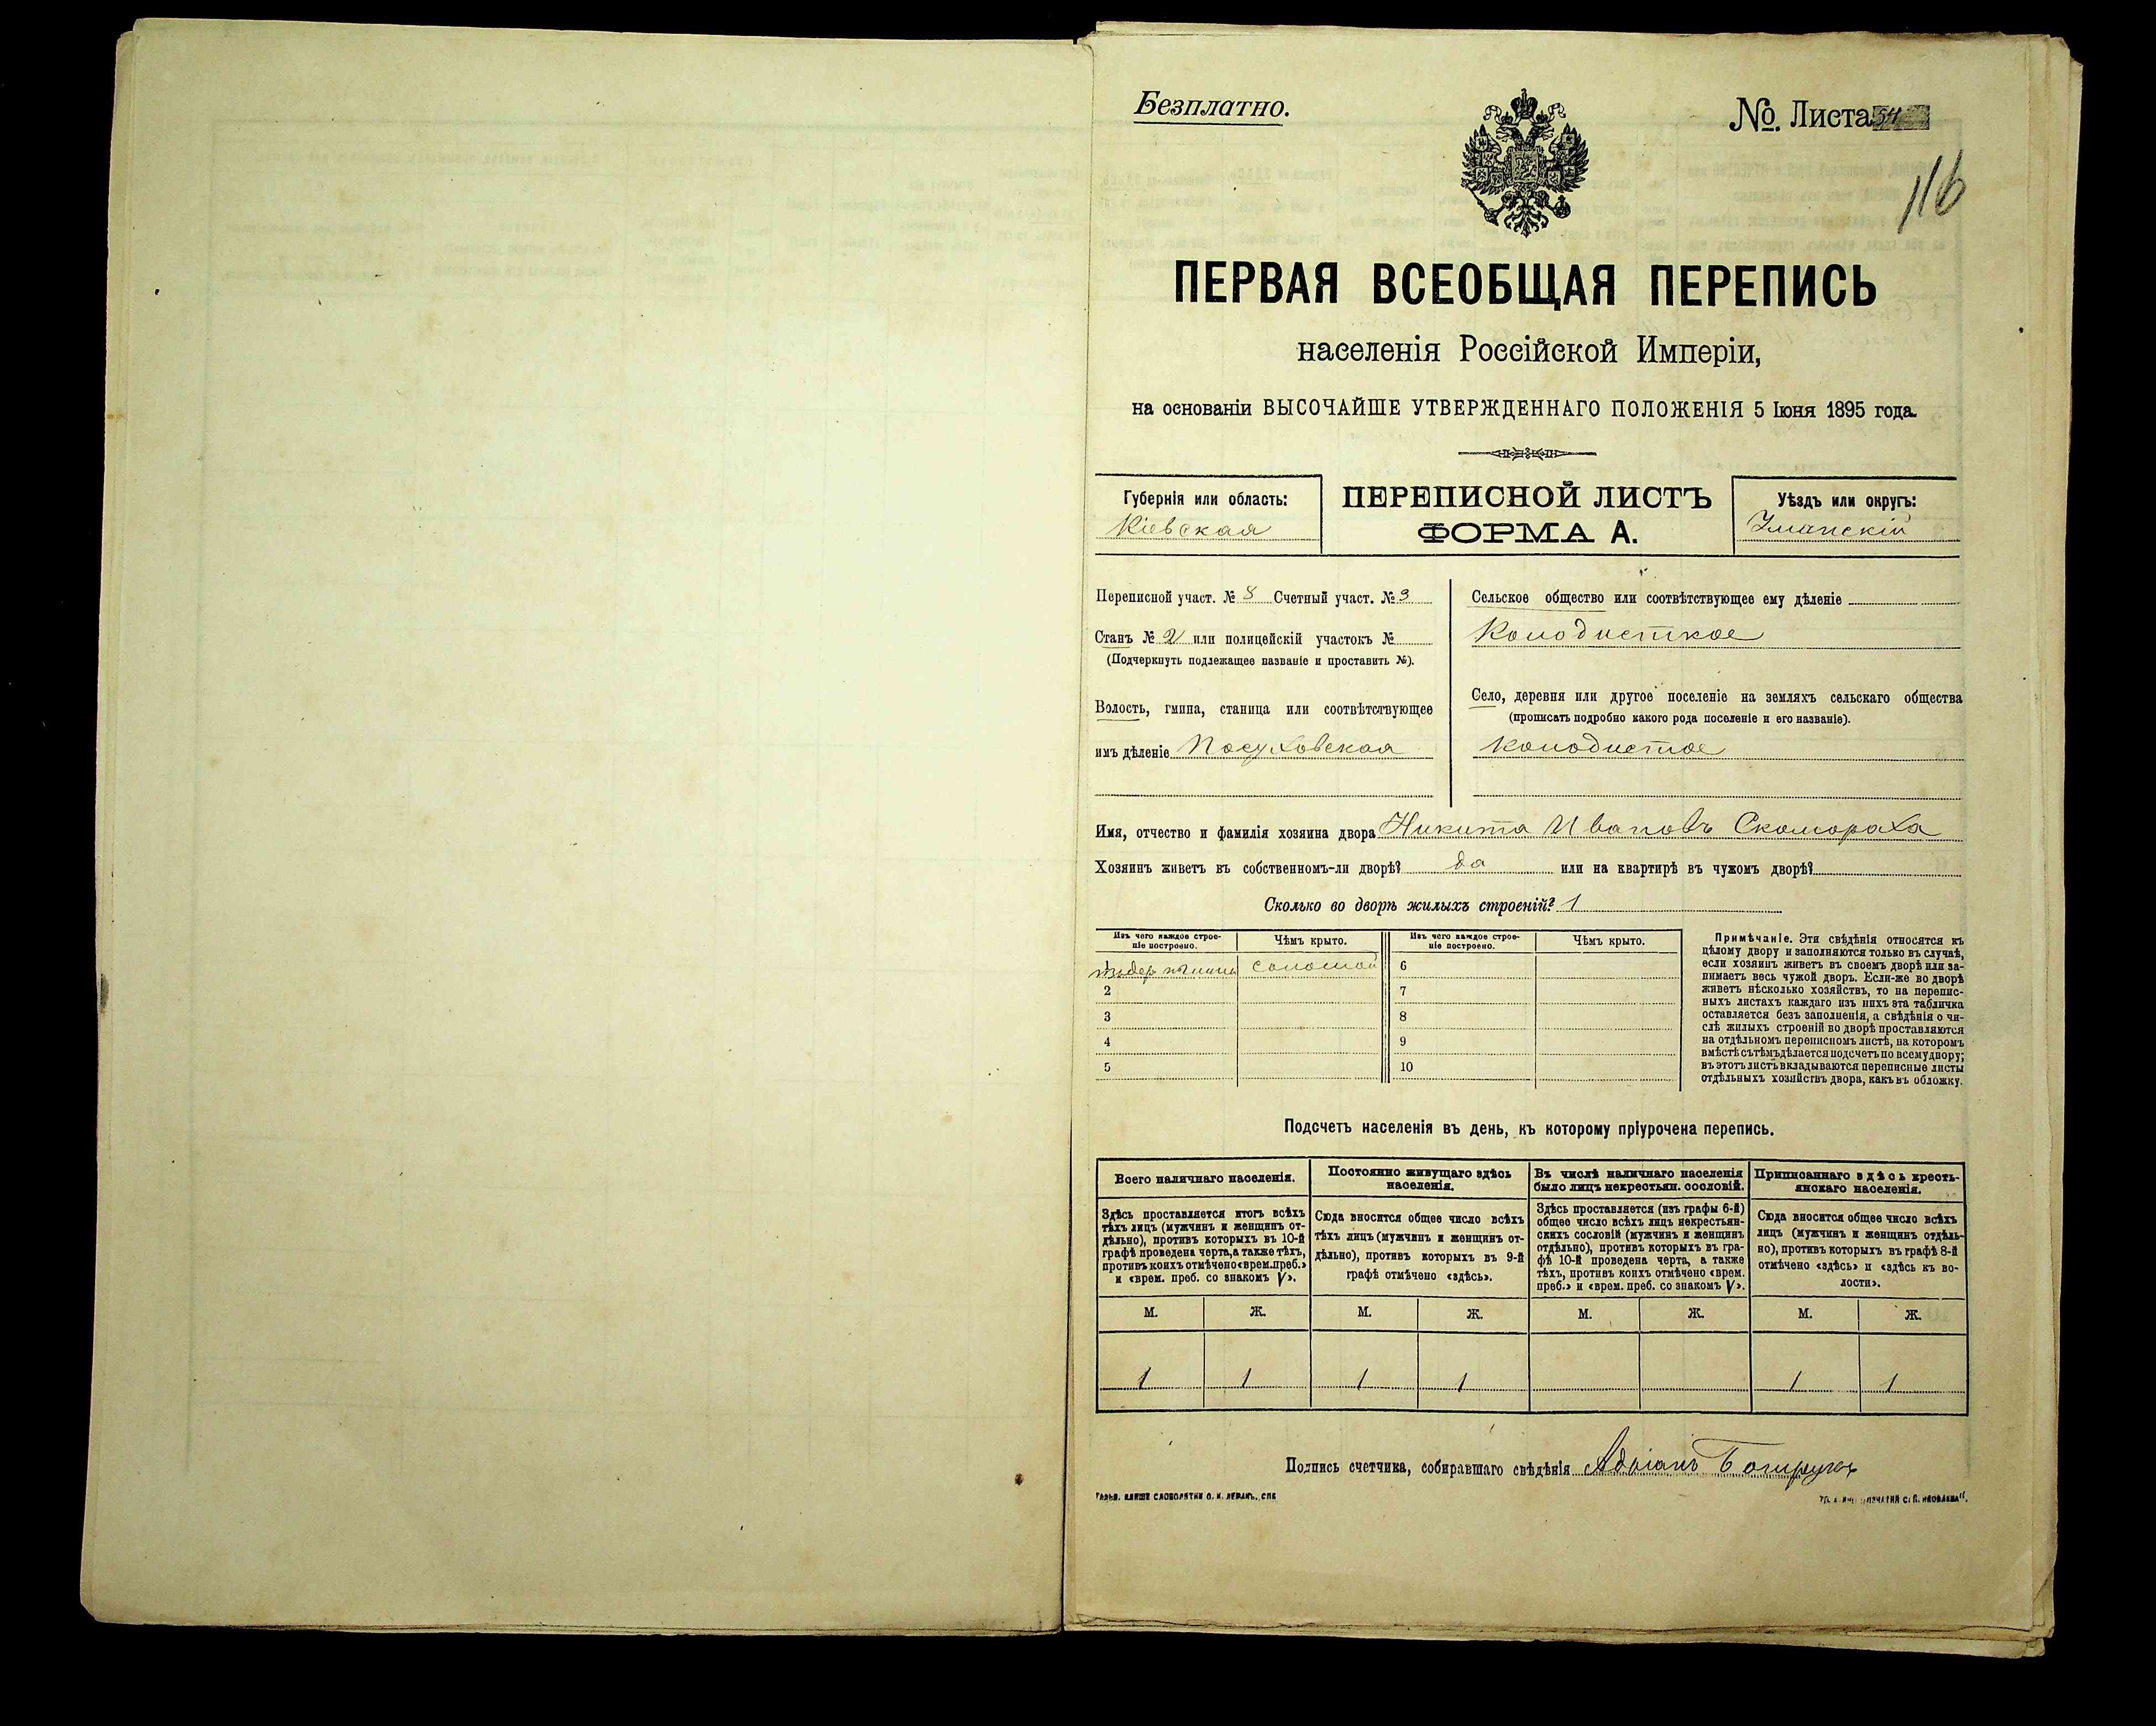 Безплатно.
№. Листа 54
116
ПЕРВАЯ ВСЕОБЩАЯ ПЕРЕПИСЬ
населенія Россійской Имперіи,
на основаніи ВЫСОЧАЙШЕ УТВЕРЖДЕННАГО ПОЛОЖЕНІЯ 5 Іюня 1895 года.
Губернія или область:
Кіевская
ПЕРЕПИСНОЙ ЛИСТЪ
ФОРМА А.
Уѣздъ или округъ:
Уманскій
Переписной участ. № 8 Счетный участ. № 3
Станъ № 2 или полицейскій участокъ №
(Подчеркнуть подлежащее названіе и проставить №).
Волость, гмина, станица или соотвѣтствующее
имъ дѣленіе Посуховская
Сельское общество или соотвѣтствующее ему дѣленіе
Колодисткое
Село, деревня или другое поселеніе на земляхъ сельскаго общества
(прописать подробно какого рода поселеніе и его названіе).
Колодистое
Имя, отчество и фамилія хозяина двора Никита Ивановъ Скомораха
Хозяинъ живетъ въ собственномъ-ли дворѣ? да или на квартирѣ въ чужомъ дворѣ?
Сколько во дворѣ жилыхъ строеній? 1
Изъ чего каждое строе-
ніе построено.
Чѣмъ крыто.
Изъ чего каждое строе-
ніе построено.
Чѣмъ крыто.
соломой
6
2
7
3
8
4
9
5
10
Примѣчаніе. Эти свѣдѣнія относятся къ
цѣлому двору и заполняются только въ случаѣ,
если хозяинъ живетъ въ своемъ дворѣ или за-
нимаетъ весь чужой дворъ. Если-же во дворѣ
живетъ нѣсколько хозяйствъ, то на перепис-
ныхъ листахъ каждаго изъ нихъ эта табличка
оставляется безъ заполненія, а свѣдѣнія о чи-
слѣ жилыхъ строеній во дворѣ проставляются
на отдѣльномъ переписномъ листѣ, на которомъ
вмѣстѣ съ тѣмъ дѣлается подсчетъ по всему двору;
въ этотъ листъ вкладываются переписные листы
отдѣльныхъ хозяйствъ двора, какъ въ обложку.
Подсчетъ населенія въ день, къ которому пріурочена перепись.
Всего наличнаго населенія.
Здѣсь проставляется итогъ всѣхъ
тѣхъ лицъ (мужчинъ и женщинъ от-
дѣльно), противъ которыхъ въ 10-й
графѣ проведена черта, а также тѣхъ,
противъ коихъ отмѣчено «врем. преб.»
и «врем. преб. со знакомъ V».
Постоянно живущаго здѣсь
населенія.
Сюда вносится общее число всѣхъ
тѣхъ лицъ (мужчинъ и женщинъ от-
дѣльно), противъ которыхъ въ 9-й
графѣ отмѣчено «здѣсь».
Въ числѣ наличнаго населенія
было лицъ некрестьян. сословій.
Здѣсь проставляется (изъ графы 6-й)
общее число всѣхъ лицъ некрестьян-
скихъ сословій (мужчинъ и женщинъ
отдѣльно), противъ которыхъ въ гра-
фѣ 10-й проведена черта, а также
тѣхъ, противъ коихъ отмѣчено «врем.
преб.» и «врем. преб. со знакомъ V».
Приписаннаго здѣсь кресть-
янскаго населенія.
Сюда вносится общее число всѣхъ
лицъ (мужчинъ и женщинъ отдѣль-
но), противъ которыхъ въ графѣ 8-й
отмѣчено «здѣсь» и «здѣсь къ во-
лости».
М. Ж. М. Ж. М. Ж. М. Ж.
1 1 1 1 1 1
Подпись счетчика, собиравшаго свѣдѣнія Адріанъ